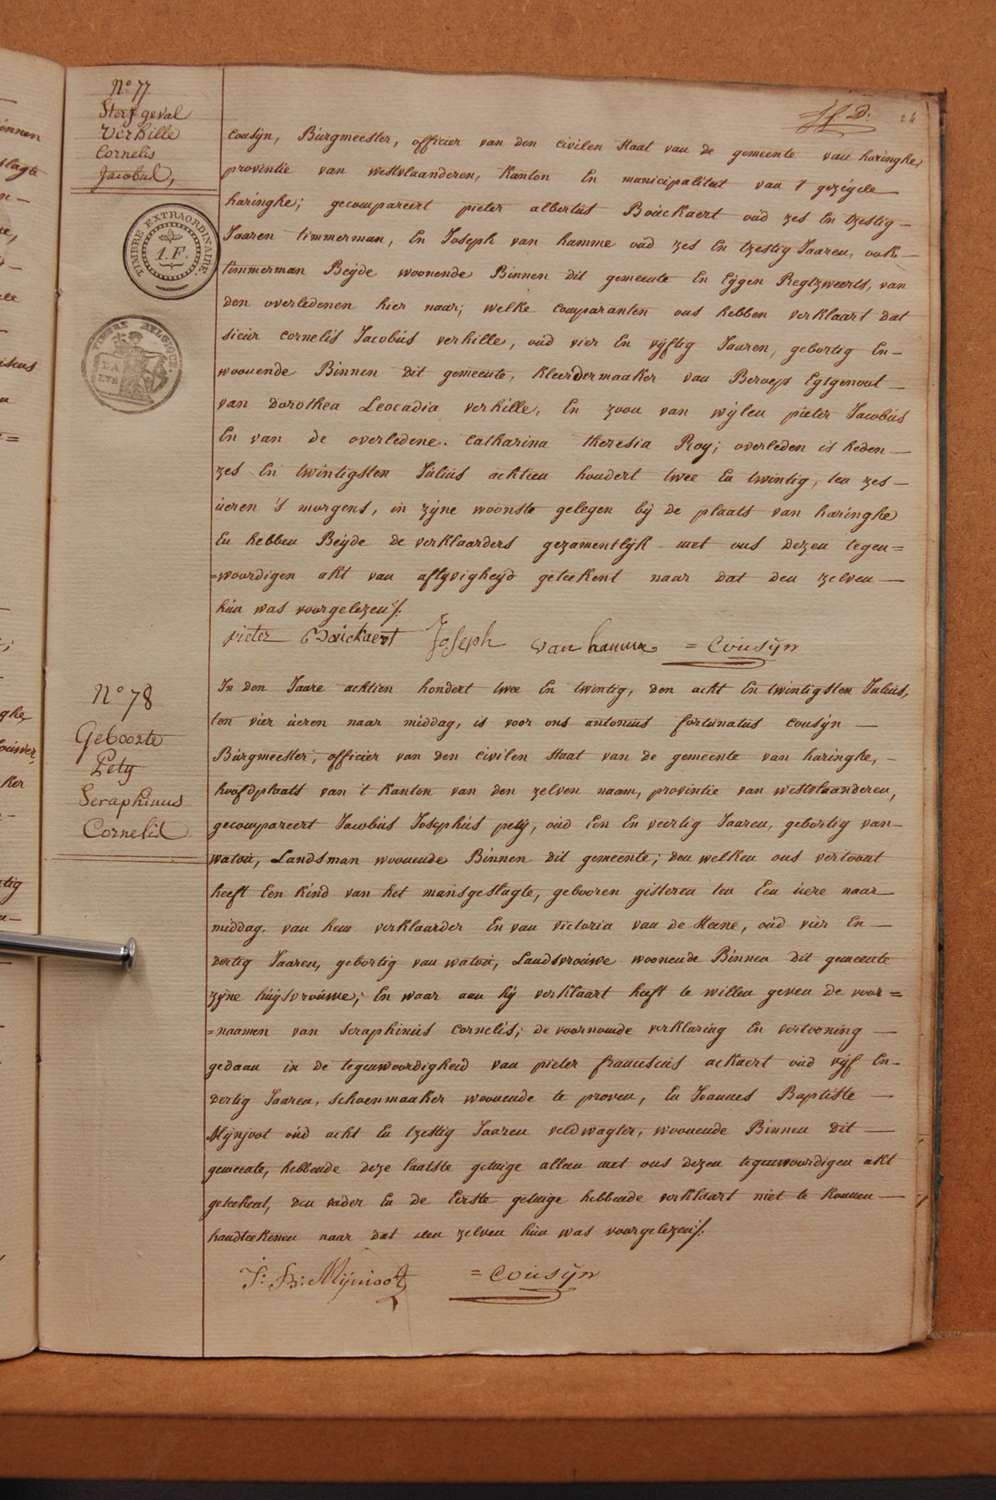 N° 77
Sterfgeval
Verhille
Cornelis
Jacobus,
TIMBRE EXTRAORDINAIRE
1. F.
TIMBRE BELGIQUE
LA
LYS
cousÿn, Burgmeester, officier van den civilen staat van de gemeente van haringhe,
provintie van westvlaanderen, Kanton En municipalitut van 't gezÿde
haringhe; gecompareert pieter albertus Bouckaert oud zes En tzestig
Jaaren timmerman, En Joseph van hamme oud zes En tzestig Jaaren, ook
timmerman Beÿde woonende Binnen dit gemeente En Eÿgen Regtzweerts, van
den overledenen hier naar; welke comparanten ons hebben verklaart dat
sieur cornelis Jacobus verhille, oud vier En vÿftig Jaaren, gebortig En
woonende Binnen dit gemeente, kleerdermaaker van Beroep Egtgenoot
van Dorothea Leocadia verhille, En zoon van wÿlen pieter Jacobus
En van de overledene. Catharina theresia Roÿ; overleden is heden
zes En twintigsten Julius achtien hondert twee En twintig, ten zes
ueren 's morgens, in zÿne woonste gelegen bÿ de plaats van haringhe
En hebben Beÿde de verklaarders gezamentlÿk met ons dezen tegen=
=woordigen akt van aflÿvigheÿd geteekent naar dat den zelven
hun was voorgelezen /.
pieter Bouckaert Joseph van hamme = Cousÿn
N° 78
Geboorte
Pety
Seraphinus
Cornelis
In den Jaare achtien hondert twee En twintig, den acht En twintigsten Julius,
ten vier ueren naar middag, is voor ons antonius fortunatus cousÿn
Burgmeester, officier van den civilen staat van de gemeente van haringhe,
hoofdplaats van 't Kanton van den zelven naam, provintie van westvlaanderen,
gecompareert Jacobus Josephus petÿ, oud Een En veertig Jaaren, gebortig van
watou, Landsman woonende Binnen dit gemeente; den welken ons vertoont
heeft Een kind van het mansgeslagte, gebooren gisteren ten Een uere naar
middag. van hem verklaarder En van victoria van de Meene, oud vier En
dertig Jaaren, gebortig van watou, Landsvrouwe woonende Binnen dit gemeente
zÿne huÿsvrouwe; En waar aan hÿ verklaart heeft te willen geven de voor=
=naamen van seraphinus cornelis; de voornoemde verklaring En vertooning
gedaan in de tegenwoordigheid van pieter franciscus ackaert oud vÿf En
dertig Jaaren, schoenmaaker woonende te proven, En Joannes Baptiste
Mÿnjoot oud acht En tzestig Jaaren veldwagter, woonende Binnen dit
gemeente, hebbende deze laatste getuige alleen met ons dezen tegenwoordigen akt
geteekent, den vader En de Eerste getuige hebbende verklaart niet te konnen
handteekenen naar dat den zelven hun was voorgelezen /.
J: B: Mÿnioot = Cousÿn